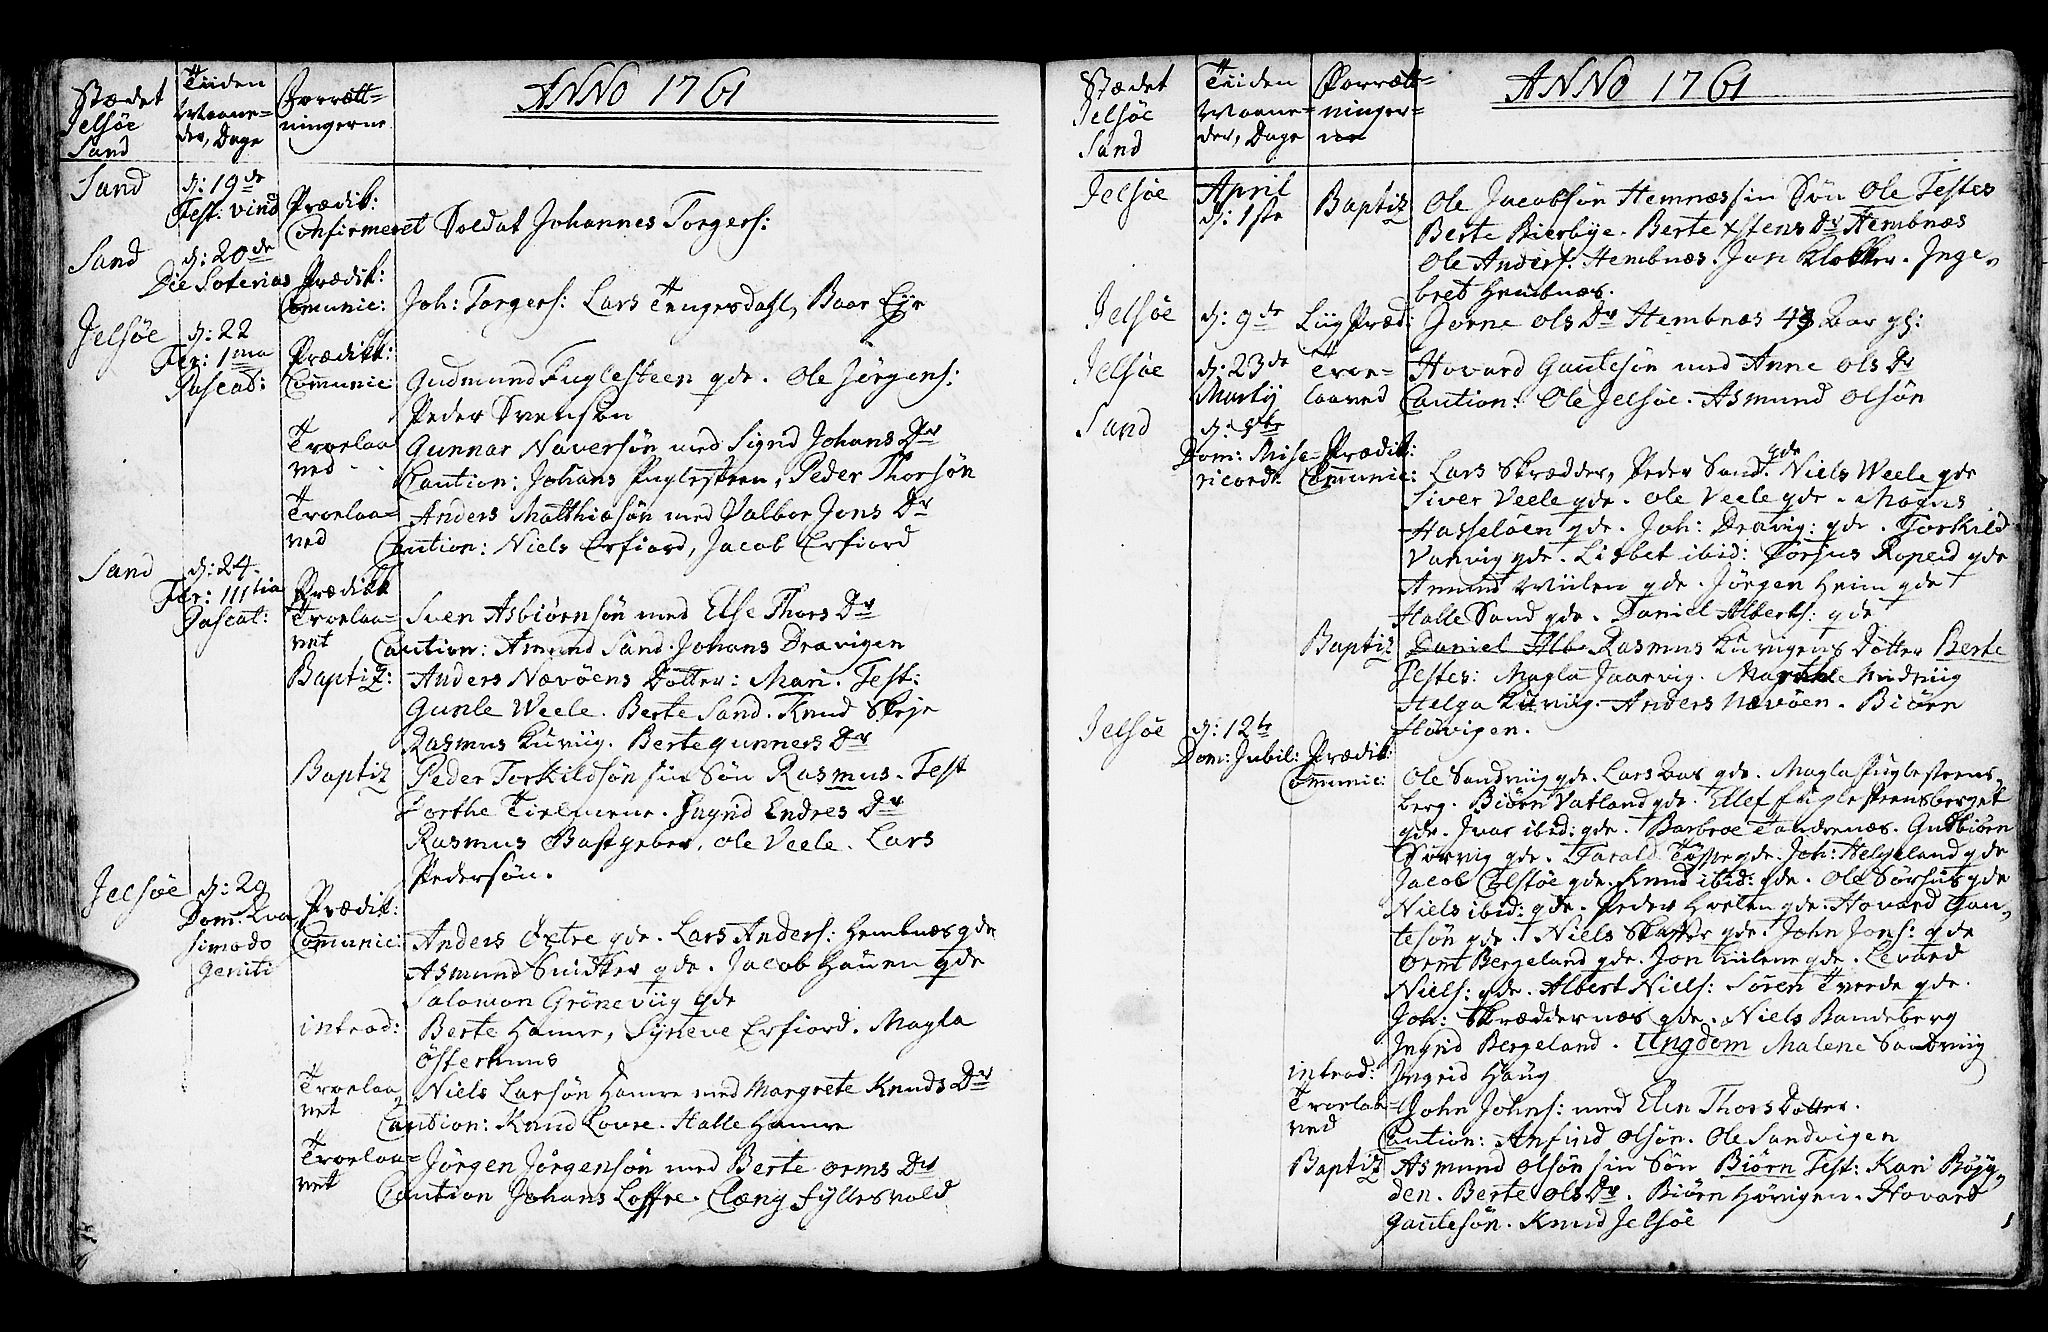 Stædet
Jelsøe
Sand
Tiiden
Maane=
der, Dage
Forrætt=
ningerne
ANNO 1761
Sand
d: 19de
Fest: vind
Prædik:
Confirmeret Soldat Johannes Torgers:
Sand
d: 20de
Die Soterias Prædik:
Com̅unic: Joh: Torgers: Lars Tengesdahl, Baar Eje
Jelsøe
d: 22
Fer: 1ma
Pascat:
Prædikk:
Com̅unic: Gudmund Fuglesteen gde. Ole Jørgens:
Peder Svensøn
Troelaa
ved
Gunnar Naversøn med Signd Johans Dr
Caution: Johans Fuglesteen, Peder Thorsøn
Troelaa=
ved
Anders Matthiæsøn med Valbor Jons Dr
Caution: Niels Erfiord, Jacob Erfiord
Sand
d: 24.
Fer: IIItia
Pascat:
Prædikk
Troelaa=
vet
Sven Asbiørnsøn med Else Thors Dr
Caution: Amund Sand. Johans Dravigen
Baptiz: Anders Nævøens Dotter: Mari. Test:
Gunle Weele. Berte Sand. Knud Skeje
Rasmus Kuviig. Berte gunners Dr
Baptiz Peder Torkildsøn sin Søn Rasmus. Test
Dorthe Tielmene. Ingrid Endres Dr
Rasmus Bastgeber, Ole Veele. Lars
Pedersøn.
Jelsøe
d: 29
Dom: Qva
simodo
Geniti
Prædik:
Com̅unic: Anders Extre gde. Lars Anders: Hembnæs gde
Asmund Snidker gde. Jacob Hauen gde
Salomon Grøneviig gde
introd: Berte Hamre, Syneve Erfiord. Magla
Østerhuus
Troelaa
vet
Niels Larsøn Hamre med Margrete Knuds Dr
Caution: Knud Lovre. Halle Hamre
Troelaa=
vet
Jørgen Jørgensøn med Berte Orms Dr
Caution Johans Loffre. Clæng Fyllesvold
Stædet
Jelsøe
Sand
Tiiden
Maane=
der, Dage
Forrætt=
ninger=
ne
ANNO 1761
Jelsøe
April
d: 1ste
Baptiz
Ole Jacobsøn Hemnæs sin Søn Ole Testes
Berte Bierbye. Berte Xstens Dr Hembnæs
Ole Anders: Hembnæs. Jon Klokker. Inge=
bret Hembnæs.
Jelsøe d: 9de Liig Præd: Jorne Ols Dr Hembnæs 43 Aar gl:
Jelsøe
d: 23de
Martij
Troe=
laaved
Hovard Gautesøn med Anne Ols Dr
Caution: Ole Jelsøe. Asmund Olsøn
Sand
d: 5te
Dom: Mise=
ricord:
Prædik:
Com̅unic: Lars Skrædder, Peder Sand gde. Niels Weele gde
Siver Veele gde. Ole Veele gde. Mogns
Hasseløen gde. Joh: Dravig: gde. Torkild
Vanvig gde. Lisbet ibid: Torsius Ropeid gde
Amund Wiilen gde. Jørgen Heim gde
Halle Sand gde. Daniel Alberts: gde
Baptiz Daniel Alb Rasmus Kuvigens Dotter Berte
Testes: Magla Jaarvig. Marthe Hudviig
Helga Kuviig. Anders Nævøen. Biørn
Høvigen.
Jelsøe
d: 12te
Dom: Jubil: Prædik:
Com̅unic: Ole Sandviig gde. Lars Aas gde. Magla Fuglesteens=
berg. Biørn Vatland gde. Ellef Fuglesteensberget
gde. Ivar ibid: gde. Barbroe Tandrenæs. Gudbiørn
Sørvig gde. Harald Tøsse gde. Joh: Helgeland gde
Jacob Colstøe gde. Knud ibid: gde. Ole Sørhus gde
Niels ibid: gde. Peder Hvelen gde. Hovard Gau=
tesøn gde. Niels Skaffer gde. John Jons: gde
Orm Bergeland gde. Jon Kulene gde. Levard
Niels: gde. Albert Niels: Søren Tverde gde.
Joh: Skræddernæs gde. Niels Bandeberg
Ingrid Bergeland. Ungdom Malene Sandviig
introd: Ingrid Haug
Troelaa=
ved
John Johns: med Elen Thors Dotter.
Caution: Anfind Olsøn. Ole Sandvigen
Baptiz Asmund Olsøn sin Søn Biørn Test: Kari Bøjg=
den. Berte Ols Dr. Biørn Høvigen. Hovard
Gautesøn. Knud Jelsøe